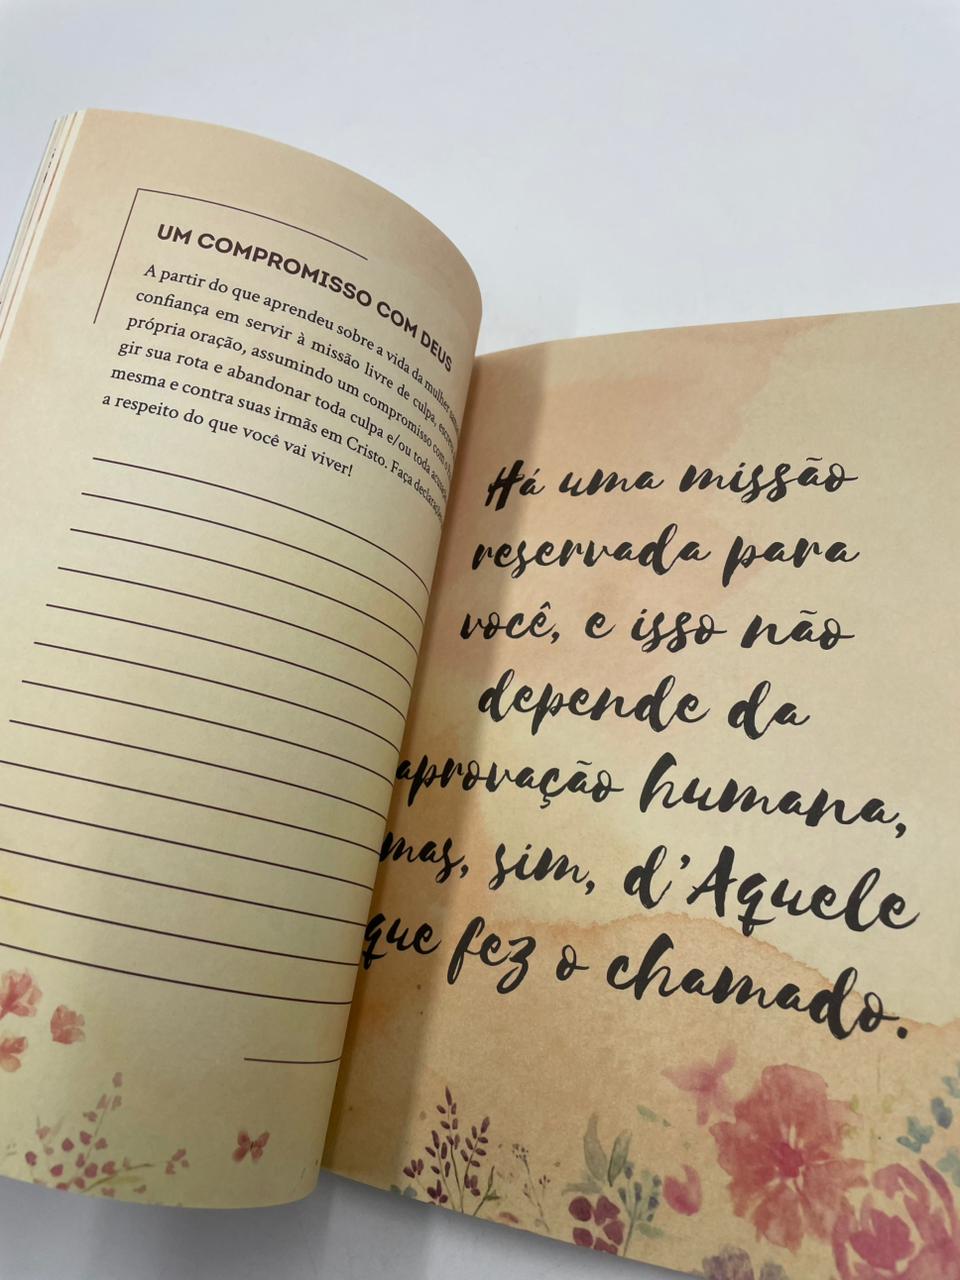 UM COMPROMISSO COM DEUS
A partir do que aprendeu sobre a vida da mulher
confiança em servir à missão livre de culpa,
própria oração, assumindo um compromisso com
gir sua rota e abandonar toda culpa e/ou toda
mesma e contra suas irmãs em Cristo. Faça declarações
a respeito do que você vai viver!
Há uma missão
reservada para
você, e isso não
depende da
aprovação humana,
mas, sim, d'Aquele
que fez o chamado.